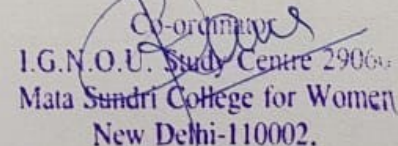 Co-ordinator
I.G.N.O.U. Study Centre 2906
Mata Sundri College for Women
New Delhi-110002.